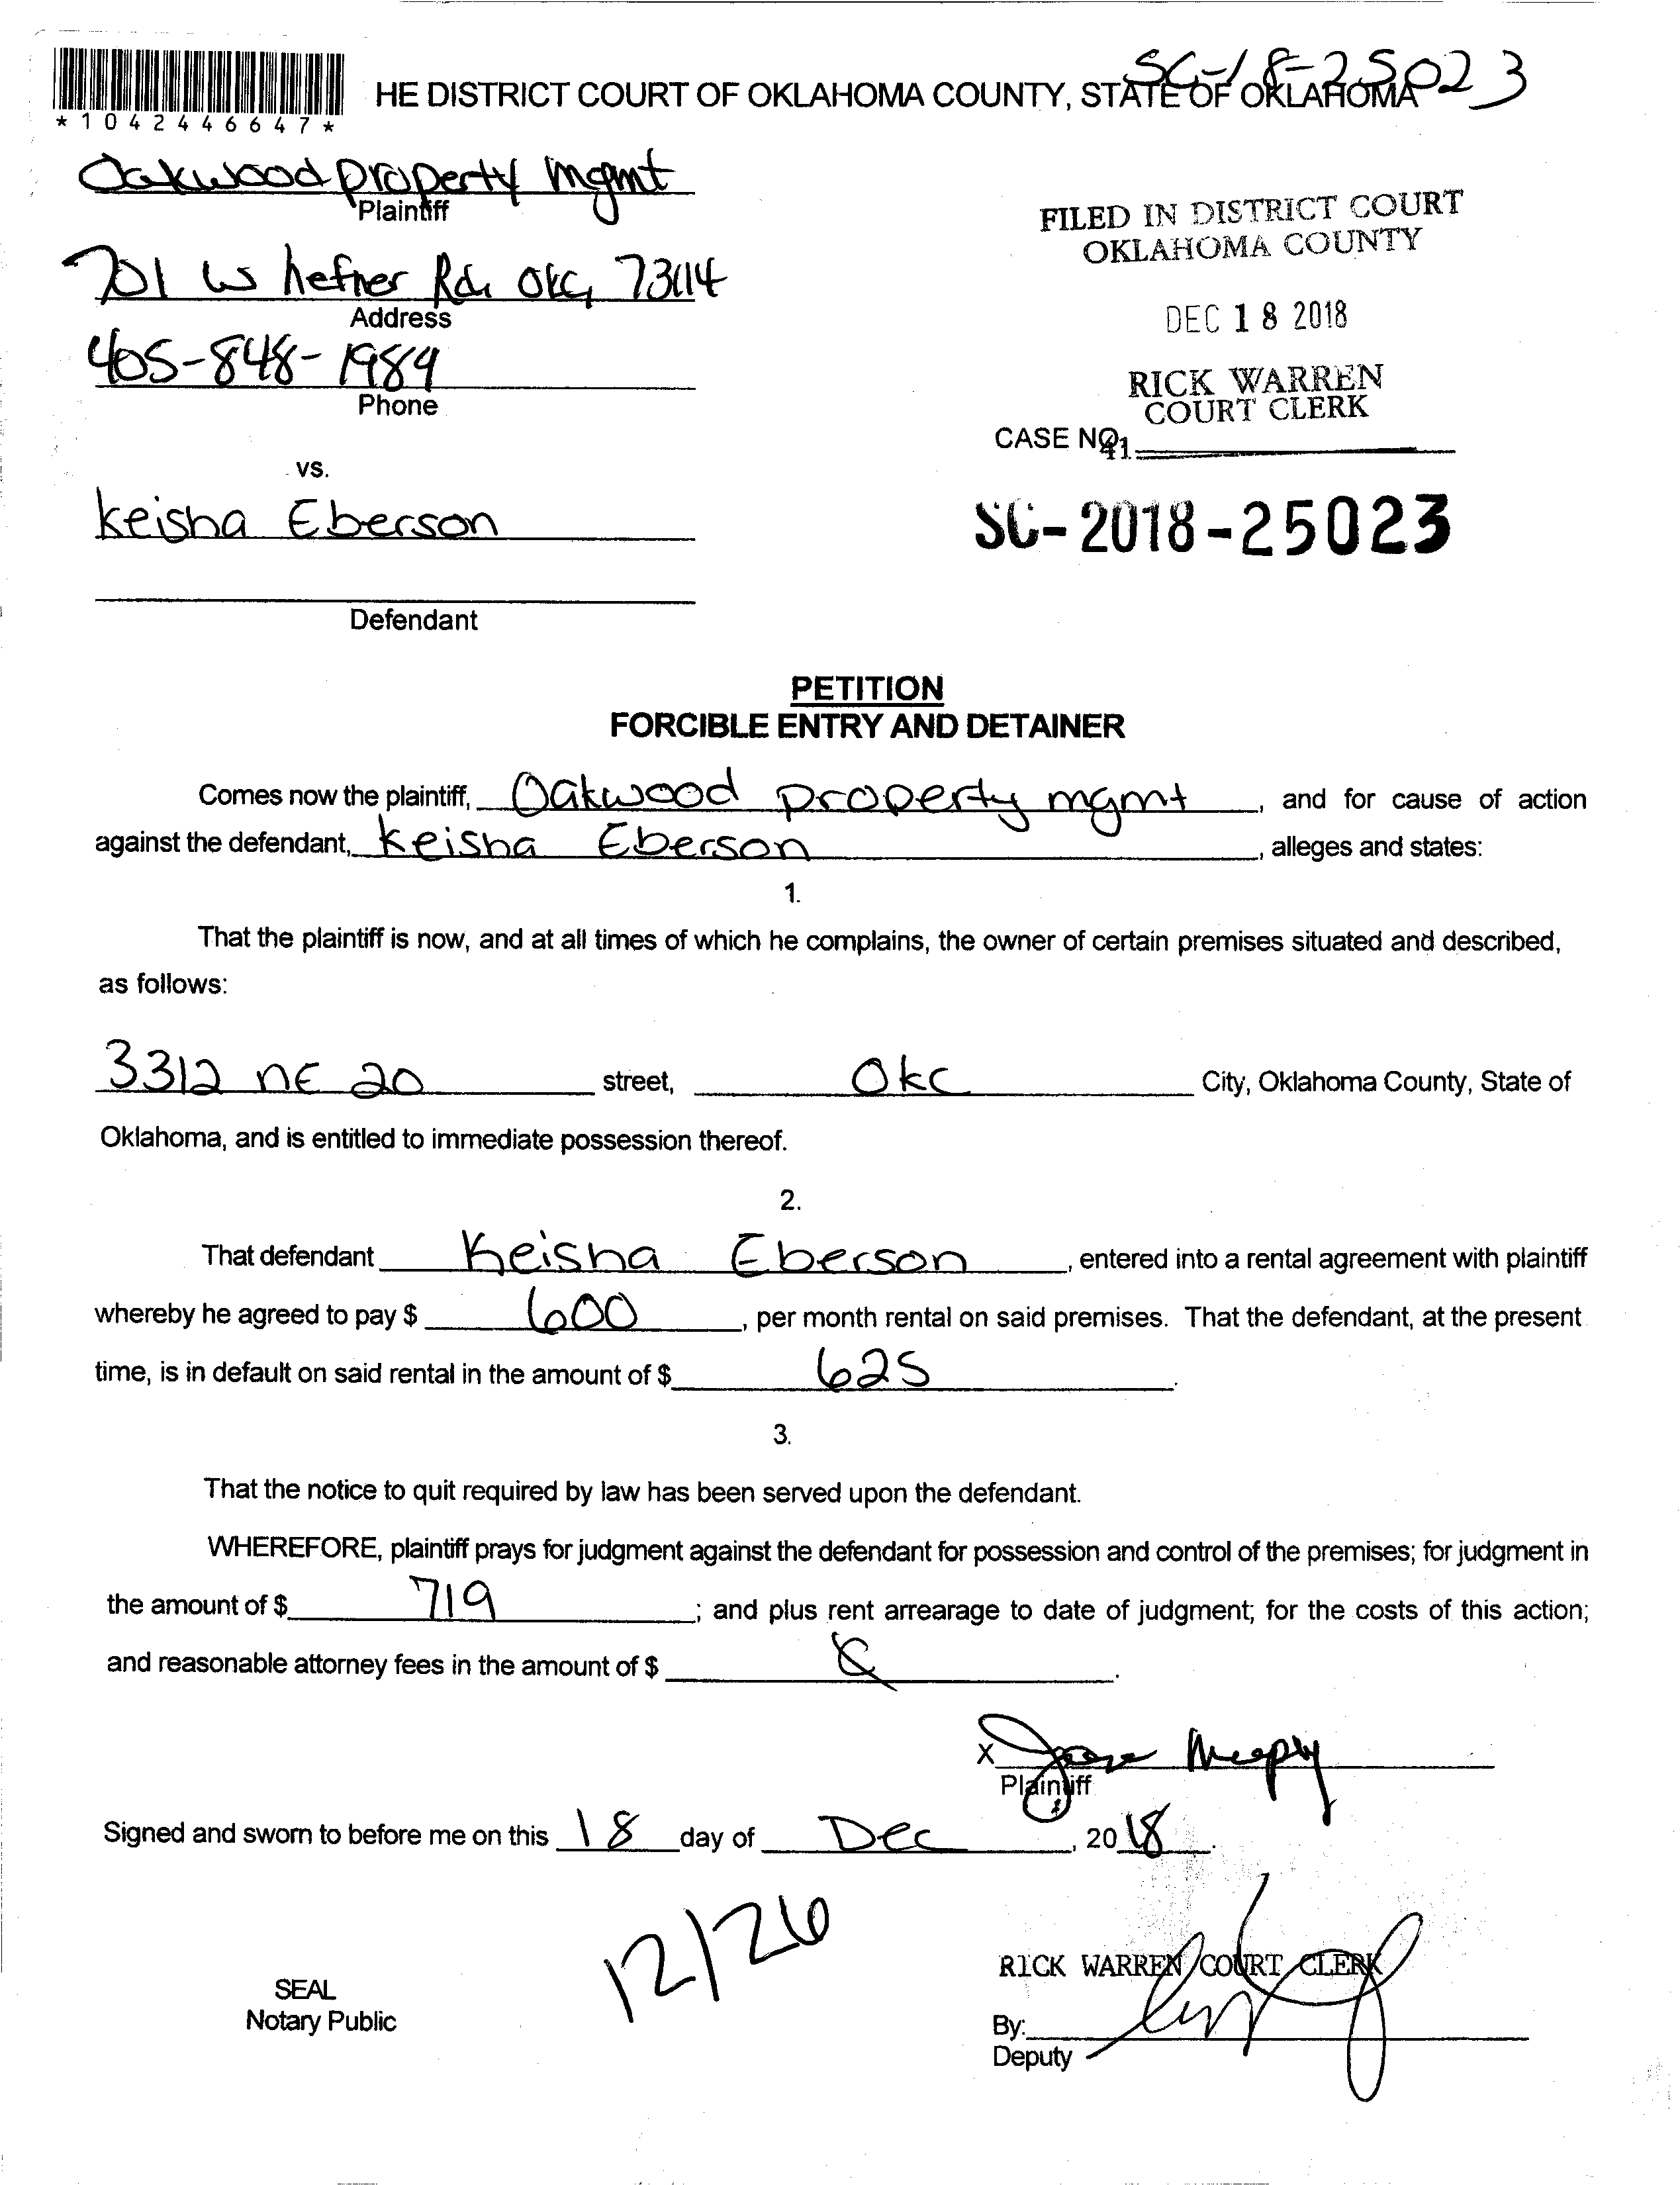 SC-18-25023
HE DISTRICT COURT OF OKLAHOMA COUNTY, STATE OF OKLAHOMA
*1042446647*
Oakwood property mgmt
Plaintiff
701 W hefner Rd. OKC, 73114
Address
405-848-1984
Phone
FILED IN DISTRICT COURT
OKLAHOMA COUNTY
DEC 18 2018
RICK WARREN
COURT CLERK
CASE NO.
41
vs.
Keisha Eberson
SC-2018-25023
Defendant
PETITION
FORCIBLE ENTRY AND DETAINER
Comes now the plaintiff, Oakwood property mgmt, and for cause of action
against the defendant, Keisha Eberson, alleges and states:
1.
That the plaintiff is now, and at all times of which he complains, the owner of certain premises situated and described,
as follows:
3312 NE 20 street, OKC City, Oklahoma County, State of
Oklahoma, and is entitled to immediate possession thereof.
2.
That defendant Keisha Eberson, entered into a rental agreement with plaintiff
whereby he agreed to pay $ 600, per month rental on said premises. That the defendant, at the present
time, is in default on said rental in the amount of $ 625.
3.
That the notice to quit required by law has been served upon the defendant.
WHEREFORE, plaintiff prays for judgment against the defendant for possession and control of the premises; for judgment in
the amount of $ 719; and plus rent arrearage to date of judgment; for the costs of this action;
and reasonable attorney fees in the amount of $ .
X
Plaintiff
Signed and sworn to before me on this 18 day of Dec, 2018.
12/26
SEAL
Notary Public
RICK WARREN COURT CLERK
By:
Deputy